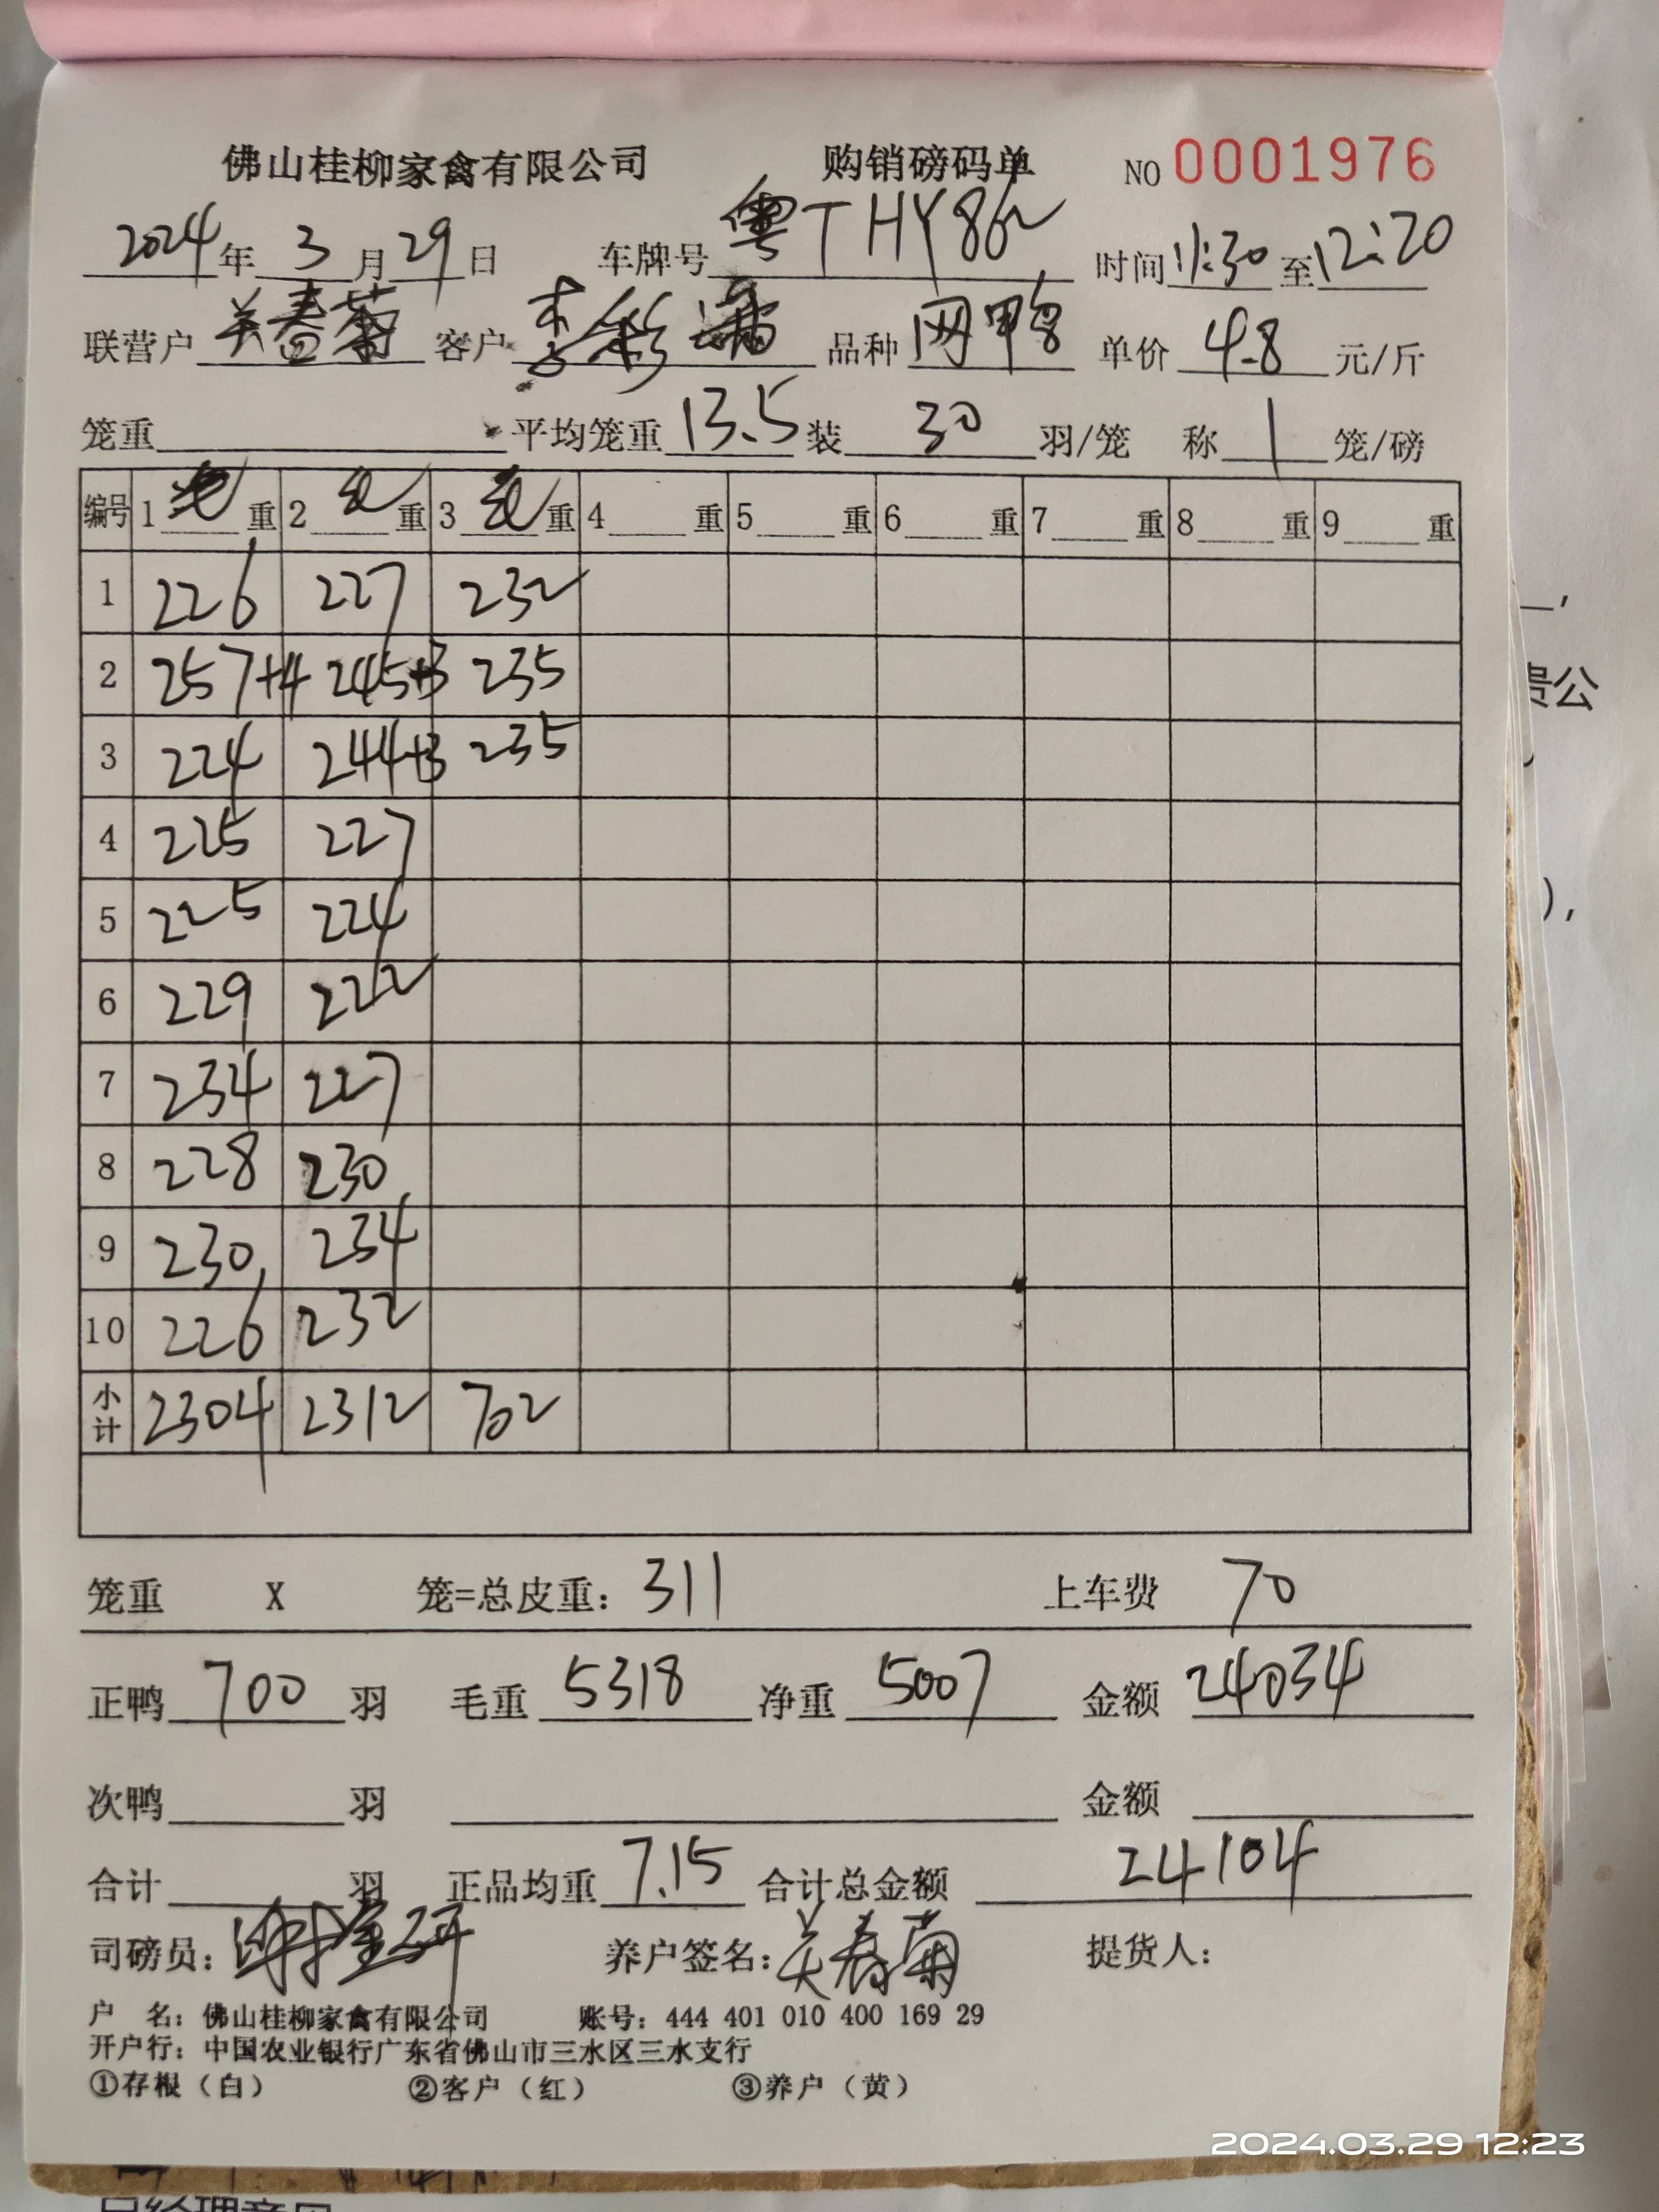 佛山桂柳家禽有限公司 购销磅码单 NO 0001976
2024年3月29日 车牌号 粤THY862 时间11:30至12:20
联营户 关春菊 客户 李彩 品种 网鸭 单价 4.8 元/斤
笼重 平均笼重13.5装 30 羽/笼 称 1 笼/磅
编号 1 毛 重 2 毛 重 3 毛 重 4 重 5 重 6 重 7 重 8 重 9 重
1 226 227 232
2 257+4 245+3 235
3 224 244+3 235
4 225 227
5 225 224
6 229 222
7 234 227
8 228 230
9 230 234
10 226 232
小计 2304 2312 702
笼重 X 笼=总皮重：311 上车费 70
正鸭 700 羽 毛重 5318 净重 5007 金额 24034
次鸭 羽 金额
合计 羽 正品均重 7.15 合计总金额 24104
司磅员： 养户签名：关春菊 提货人：
户 名：佛山桂柳家禽有限公司 账号：444 401 010 400 169 29
开户行：中国农业银行广东省佛山市三水区三水支行
①存根（白） ②客户（红） ③养户（黄）
贵公
),
2024.03.29 12:23